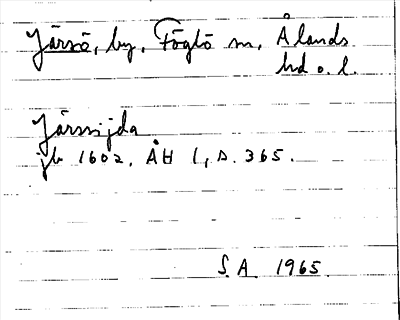 Järsö, by, Föglö sn, Ålands
hd o. l.
Järssijda
jb 1602, ÅH 1, s. 365.
S.A. 1965.